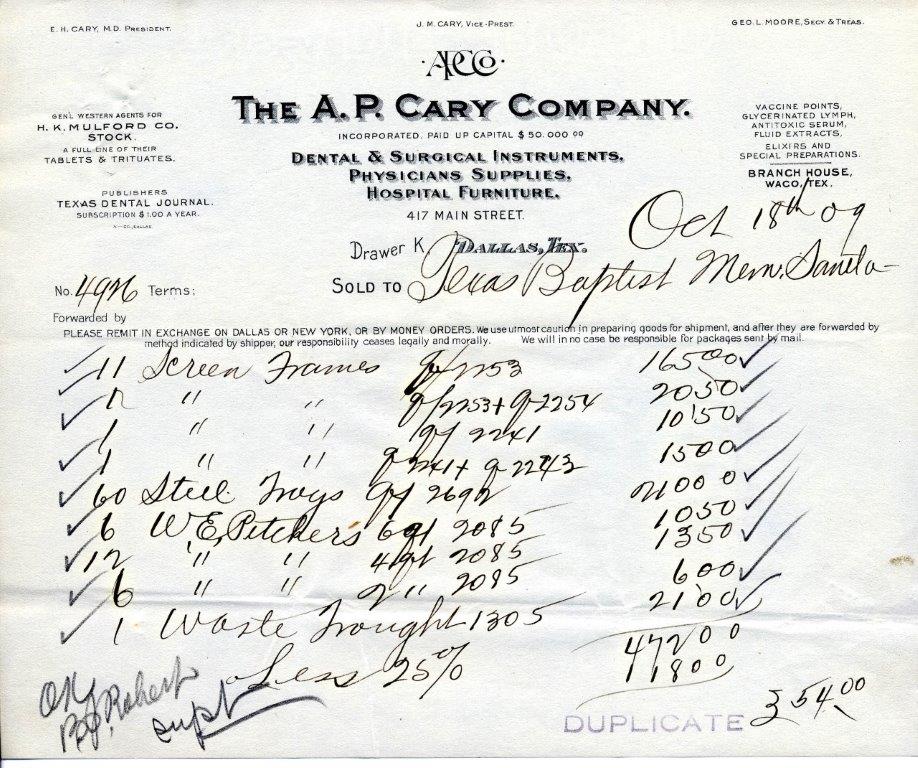 E. H. CARY, M.D. PRESIDENT.
J. M. CARY, VICE-PREST.
GEO. L. MOORE, SECY & TREAS.
APCCo
THE A. P. CARY COMPANY.
INCORPORATED. PAID UP CAPITAL $50.000 00
DENTAL & SURGICAL INSTRUMENTS.
PHYSICIANS SUPPLIES.
HOSPITAL FURNITURE.
417 MAIN STREET.
Drawer K. DALLAS, TEX.
GEN'L WESTERN AGENTS FOR
H. K. MULFORD CO.
STOCK.
A FULL LINE OF THEIR
TABLETS & TRITUATES.
PUBLISHERS
TEXAS DENTAL JOURNAL.
SUBSCRIPTION $1.00 A YEAR.
VACCINE POINTS,
GLYCERINATED LYMPH,
ANTITOXIC SERUM,
FLUID EXTRACTS,
ELIXIRS AND
SPECIAL PREPARATIONS.
BRANCH HOUSE,
WACO, TEX.
Oct 18th 09
SOLD TO Texas Baptist Mem. Sanita-
No. 4926 Terms:
Forwarded by
PLEASE REMIT IN EXCHANGE ON DALLAS OR NEW YORK, OR BY MONEY ORDERS. We use utmost caution in preparing goods for shipment, and after they are forwarded by
method indicated by shipper, our responsibility ceases legally and morally. We will in no case be responsible for packages sent by mail.
11 Screen Frames 2253 165 00
" " 2253 + 2254 20 50
1 " " 2241 10 50
1 " " 2241 + 2243 15 00
60 Steel Trays 2692 210 00
6 W.E. Pitchers 6 qt 2085 10 50
12 " " 4 qt 2085 13 50
6 " " 2 " 2085 6 00
1 Waste 1305 21 00
472 00
Less 25% 118 00
354.00
DUPLICATE
OK
Roberts
supt